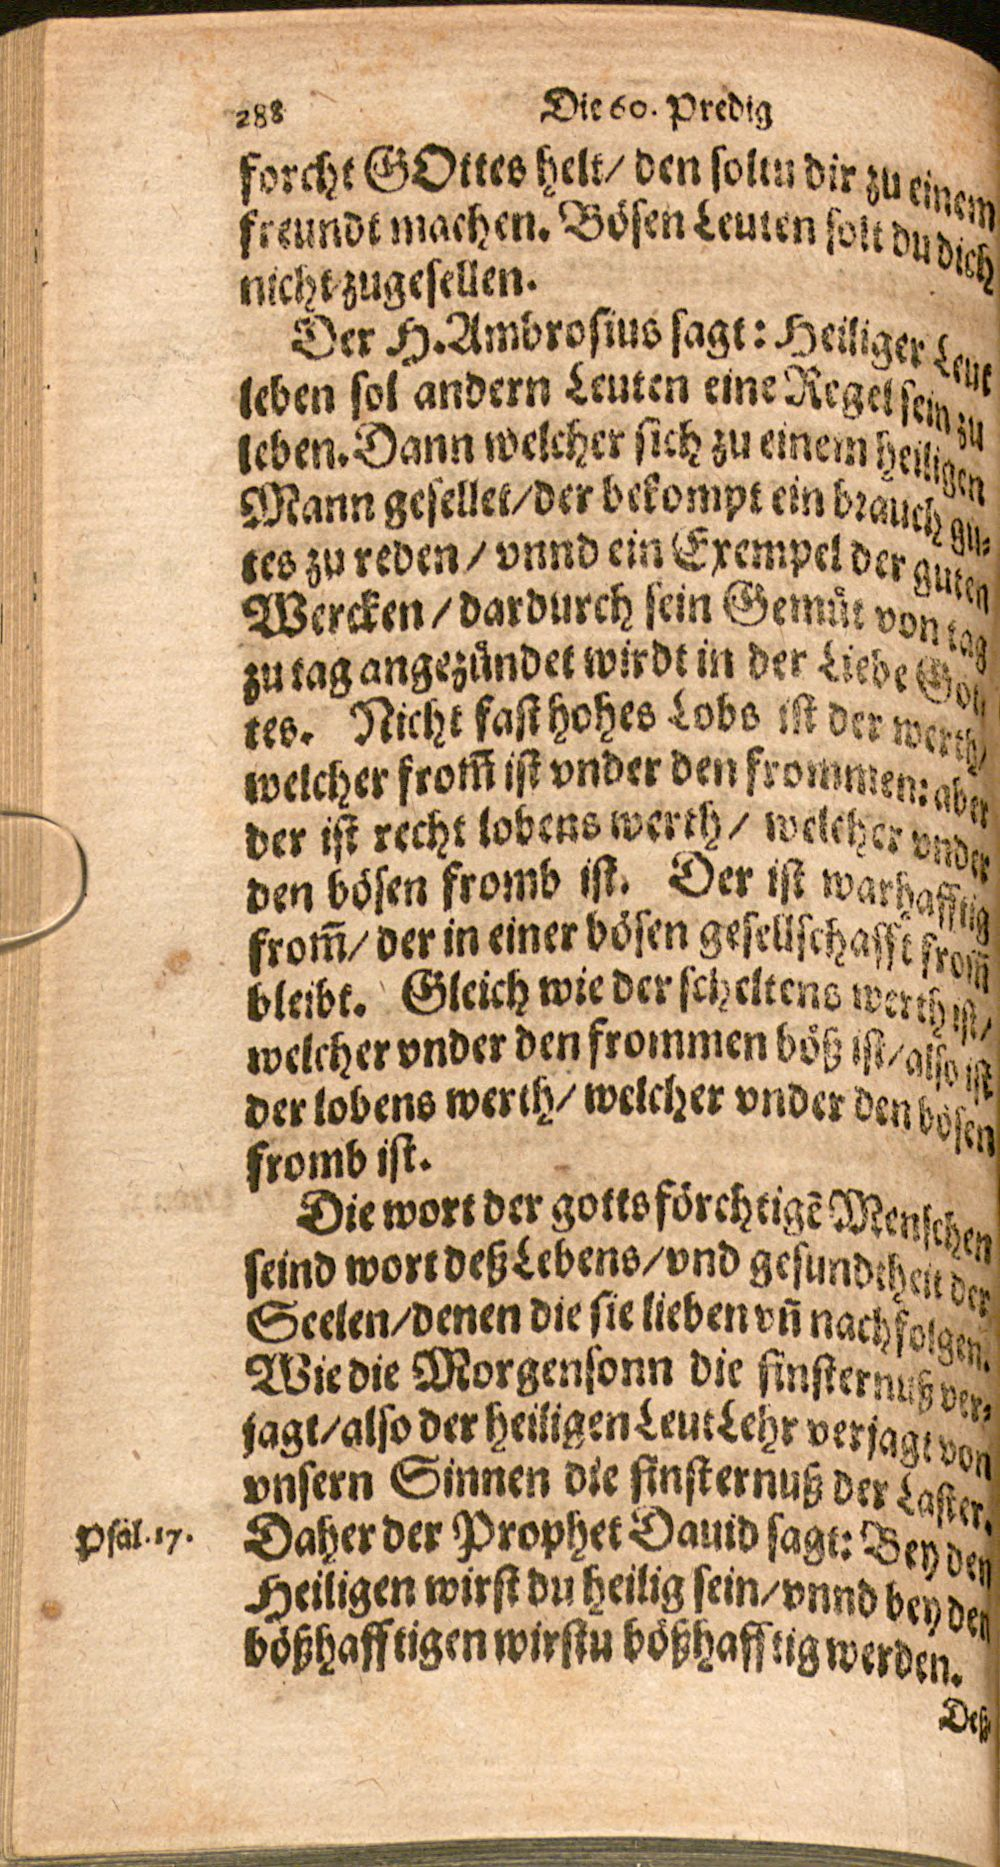 288 Die 60. Predig
forcht GOttes helt/ den soltu dir zu einem
freundt machen. Bösen Leuten solt du dich
nicht zugesellen.
Der H. Ambrosius sagt: Heiliger Leut
leben sol andern Leuten eine Regel sein zu
leben. Dann welcher sich zu einem heiligen
Mann gesellet/ der bekompt ein brauch gu-
tes zu reden/ vnnd ein Exempel der guten
Wercken/ dardurch sein Gemüt von tag
zu tag angezündet wirdt in der Liebe Got-
tes. Nicht fast hohes Lobs ist der werth/
welcher from̃ ist vnder den frommen: aber
der ist recht lobens werth/ welcher vnder
den bösen fromb ist. Der ist warhafftig
from̃/ der in einer bösen gesellschafft from̃
bleibt. Gleich wie der scheltens werth ist/
welcher vnder den frommen böß ist/ also ist
der lobens werth/ welcher vnder den bösen
fromb ist.
Die wort der gottsförchtigẽ Menschen
seind wort deß Lebens/ vnd gesundtheit der
Seelen/ denen die sie lieben vñ nachfolgen.
Wie die Morgensonn die finsternuß ver-
jagt/ also der heiligen Leut Lehr verjagt von
vnsern Sinnen die finsternuß der Laster.
Psal. 17. Daher der Prophet Dauid sagt: Bey den
Heiligen wirst du heilig sein/ vnnd bey den
bößhafftigen wirstu bößhafftig werden.
Deß